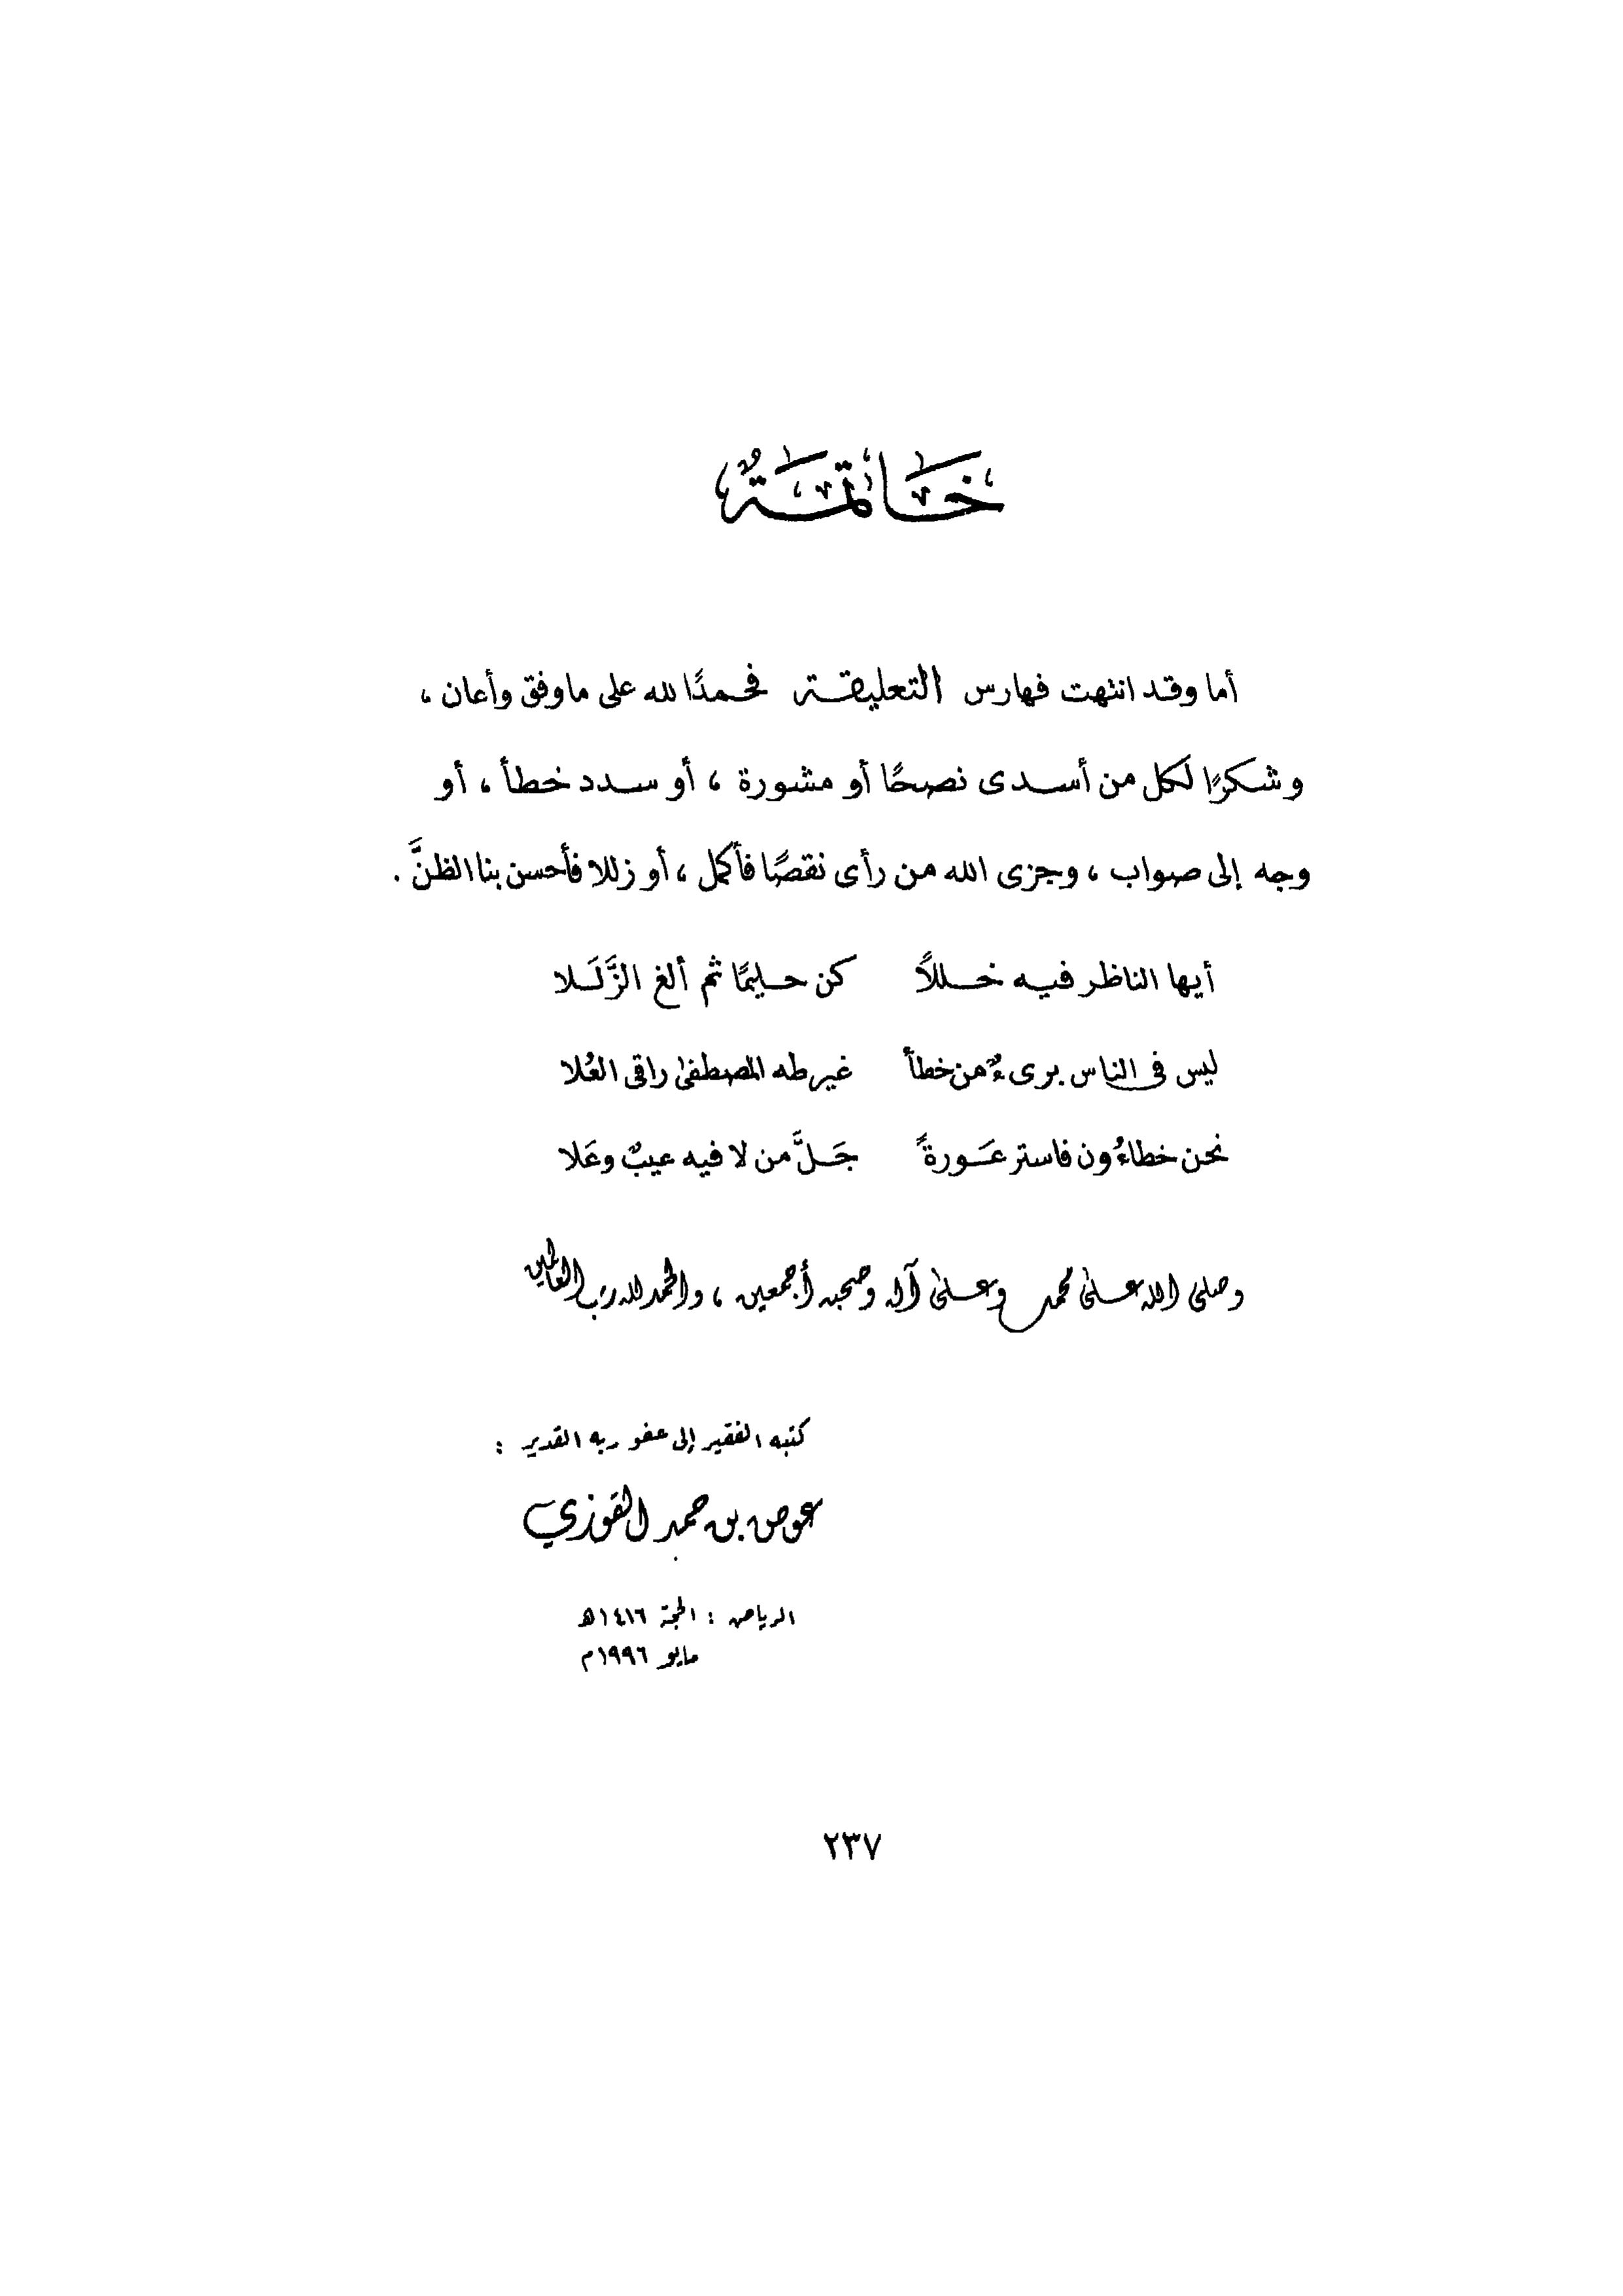 خَاتمَةٌ
أما وقد انتهت فهارس التعليقة فحمدًا لله على ما وفق وأعان ،
وشكرًا لكل من أسدى نصحًا أو مشورة ، أو سدد خطأ ، أو
وجه إلى صواب ، وجزى الله من رأى نقصًا فأكمل ، أو زللا فأحسن بنا الظنَّ .
أيها الناظر فيه خللاً كن حليمًا ثم ألغ الزَّلَلا
ليس في الناس برىءٌ من خطأ غير طه المصطفىٰ راقى العُلا
نحن خطاءُون فاستر عَورةً جَلَّ من لا فيه عيبٌ وعَلا
وصلى الله علىٰ محمد وعلىٰ آله وصحبه أجمعين ، والحمد لله رب العالمين
كتبه الفقير إلى عفو ربه القدير :
عوض بن حمد القوزي
الرياض : الحجة ١٤١٦هـ
مايو ١٩٩٦م
٢٣٧